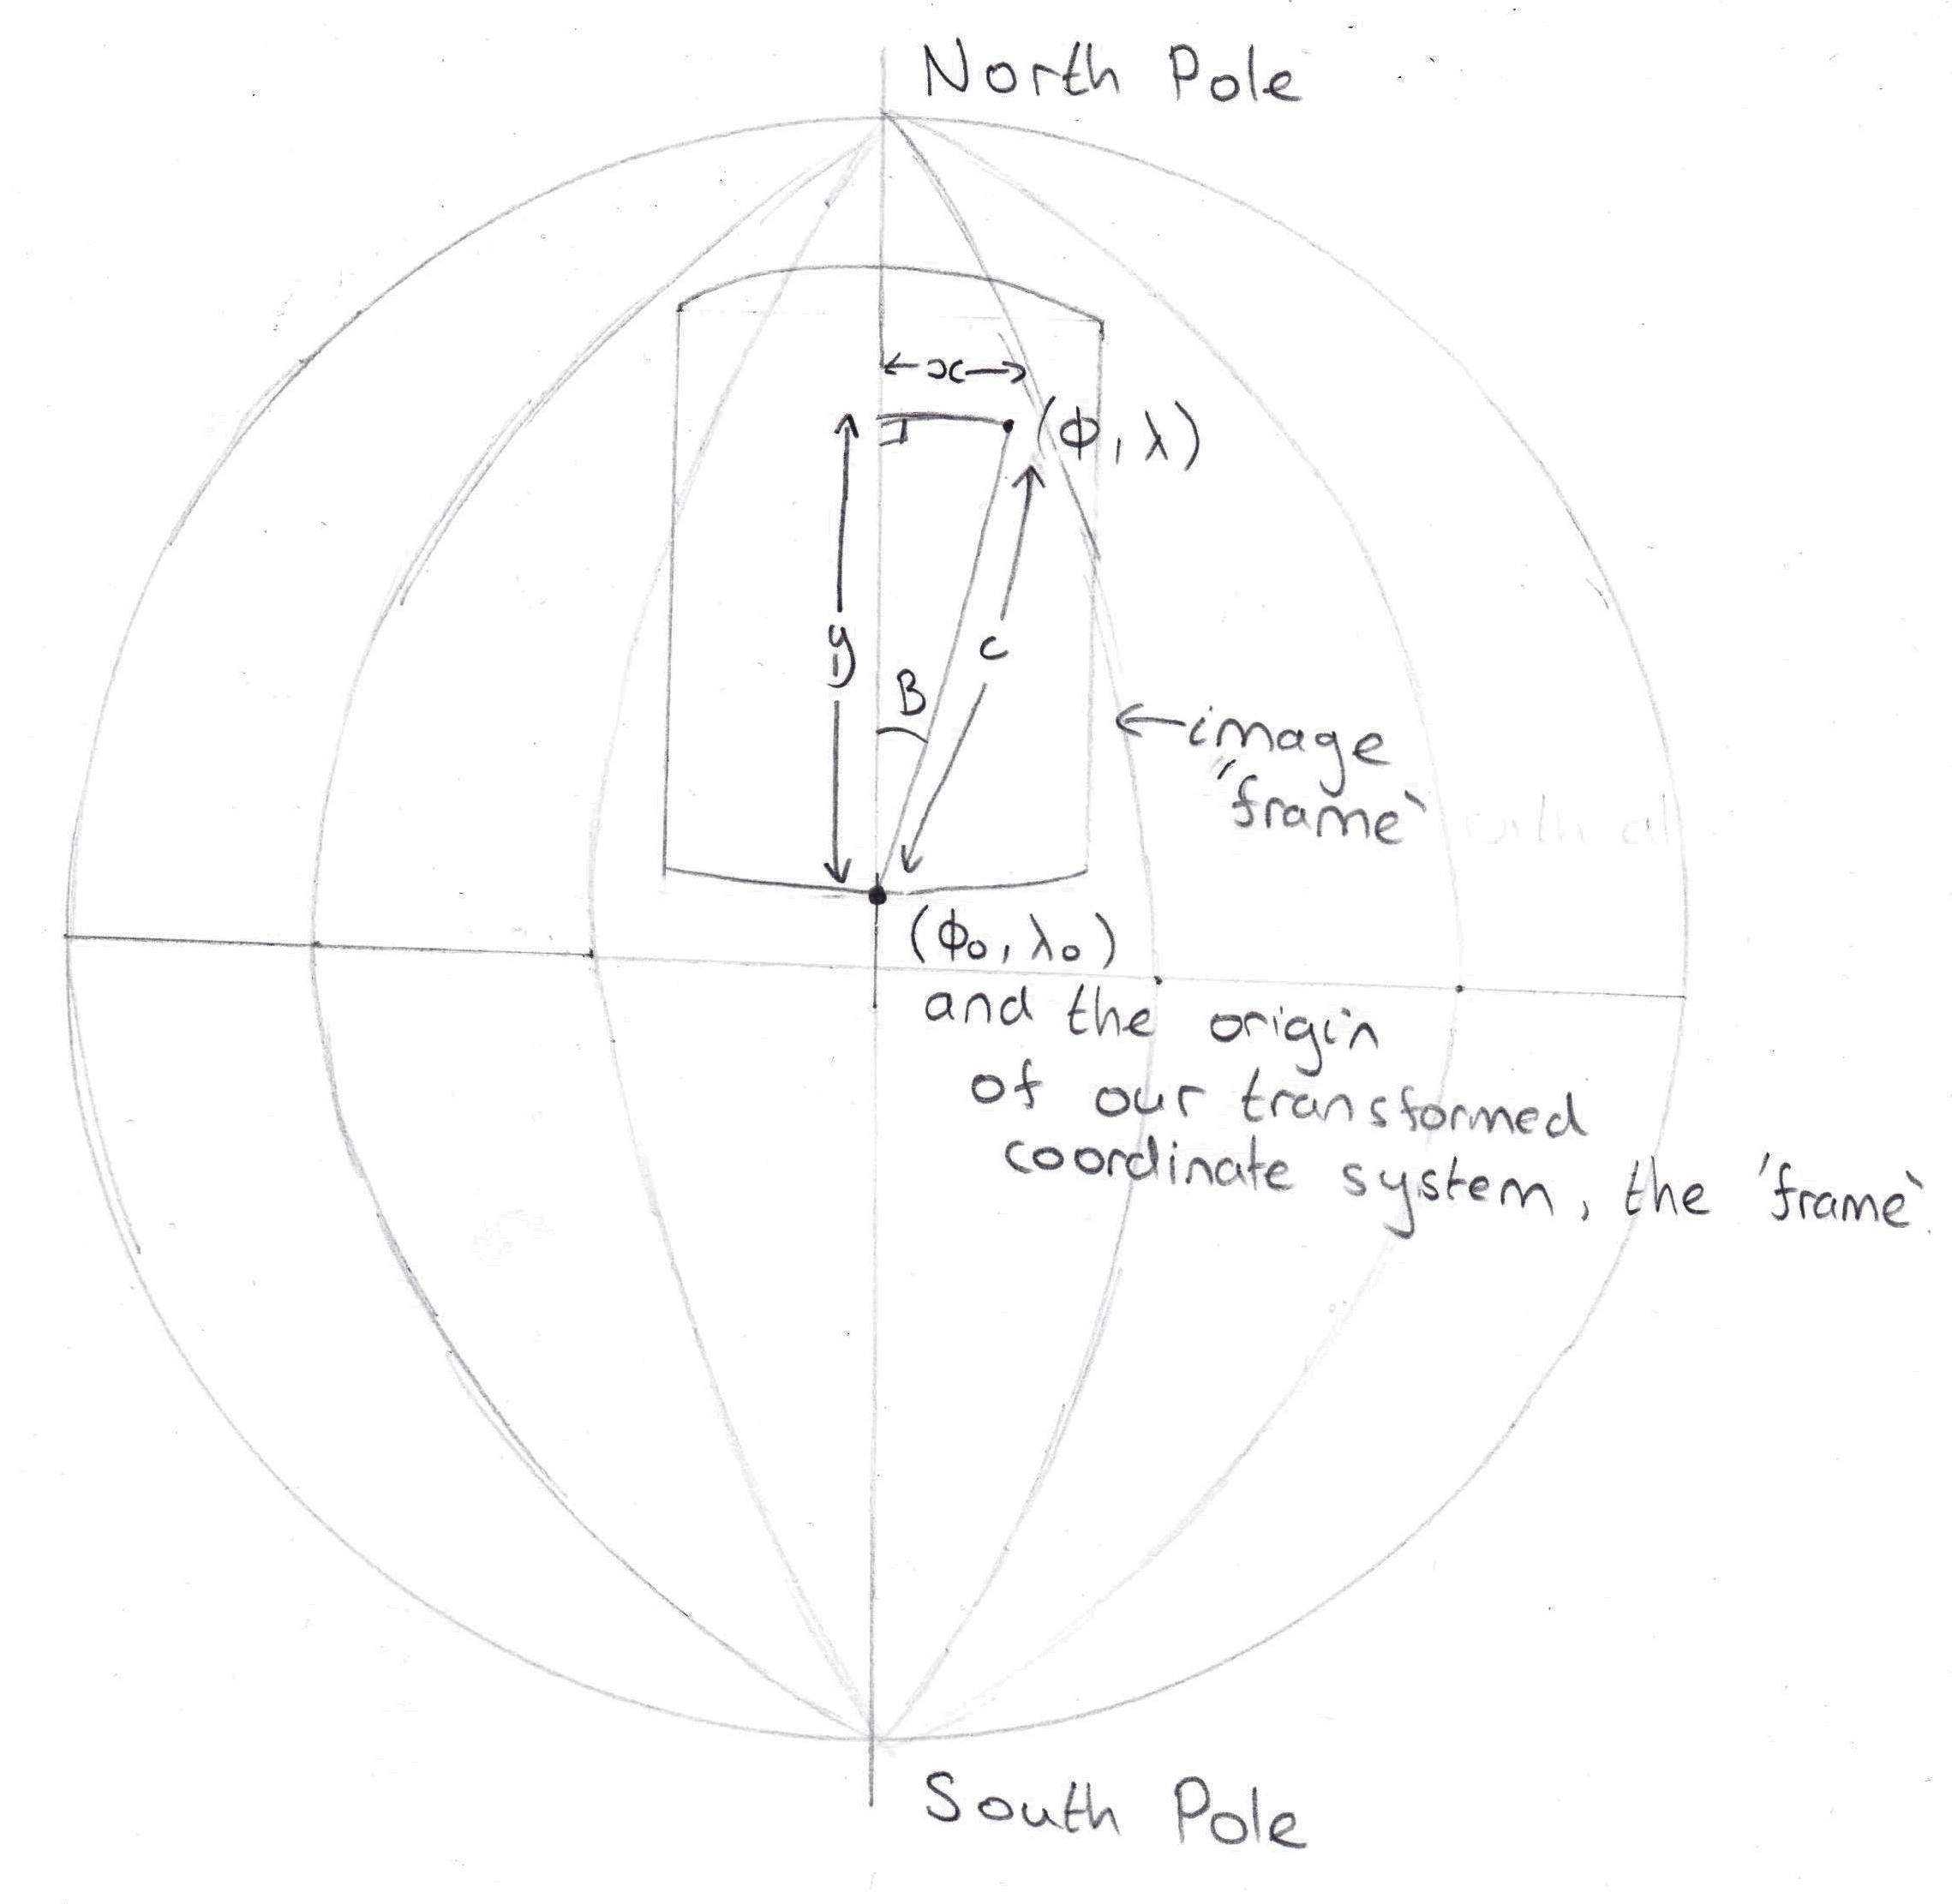 North Pole
←x→
(φ, λ)
y
c
B
←image
'frame'
(φ₀, λ₀)
and the origin
of our transformed
coordinate system, the 'frame'.
South Pole